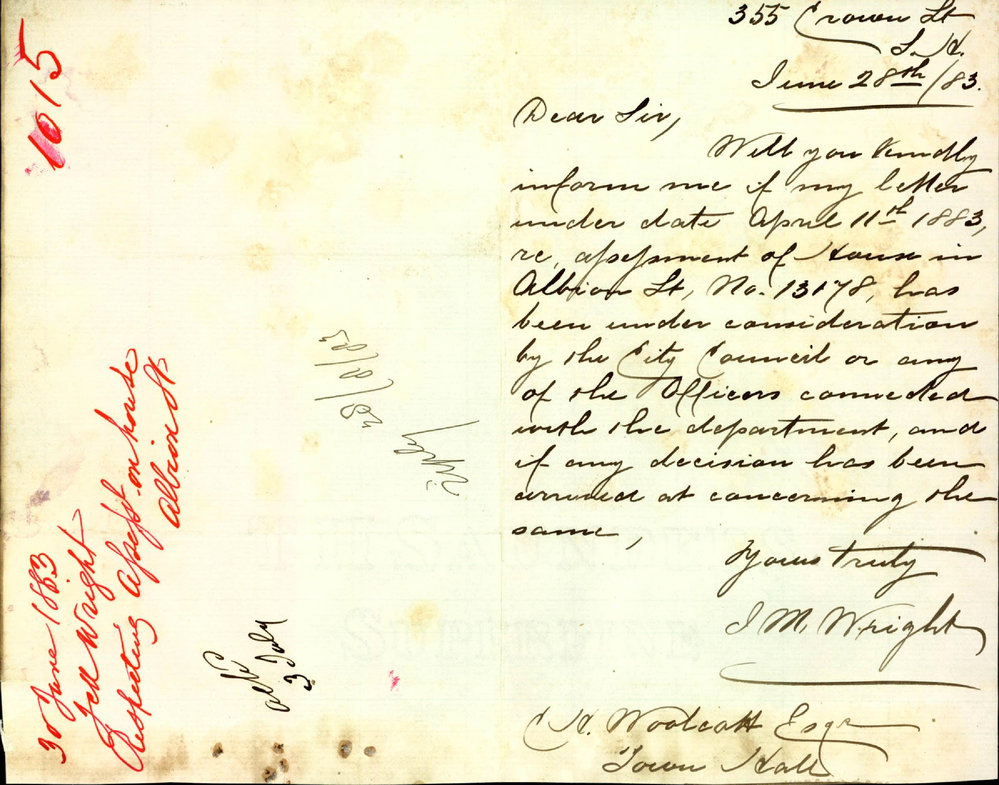 355 Crown St
S. H.
June 28th/83.
Dear Sir,
Will you kindly
inform me if my letter
under date April 11th 1883,
re, assessment of House in
Albion St, No. 13178, has
been under consideration
by the City Council or any
of the Officers connected
with the department, and
if any decision has been
arrived at concerning the
same,
Yours truly
J M. Wright
C H. Woolcott Esqr
Town Hall
1015
30 June 1883
Wright
Respecting Assesst. on house
Albion St
3 July